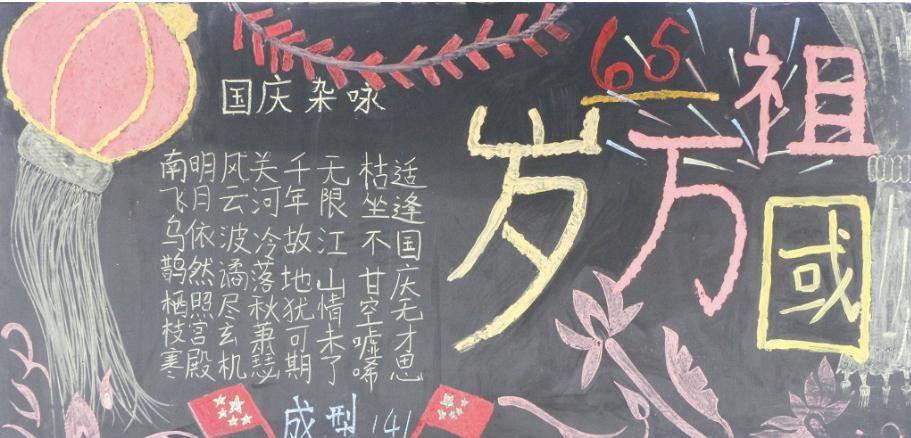 祖國
万岁
65
国庆杂咏
适逢国庆无才思
枯坐不甘空嘘唏
无限江山情未了
千年故地犹可期
关河冷落秋兼瑟
风云波谲尽玄机
明月依然照宫殿
南飞乌鹊栖枝寒
成型141